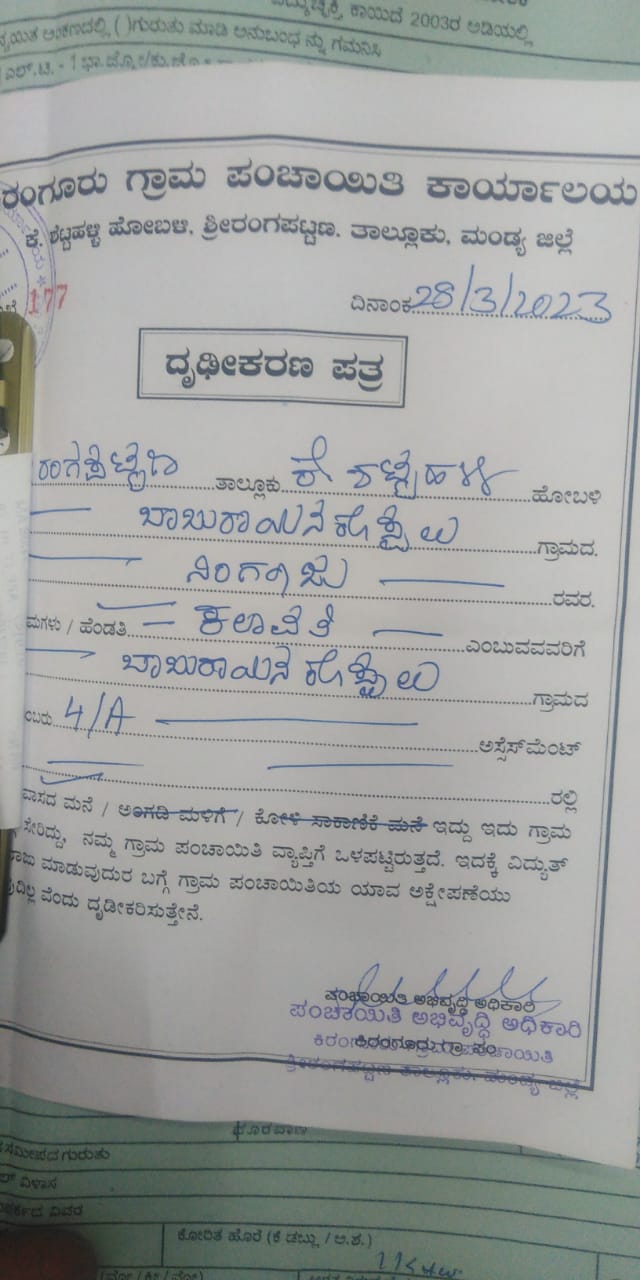 ಕಾಯಿದೆ 2003ರ ಅಡಿಯಲ್ಲಿ
ಅಂಕಣದಲ್ಲಿ ( )ಗುರುತು ಮಾಡಿ ಅನುಬಂಧ ನ್ನು ಗಮನಿಸಿ
ಎಲ್.ಟಿ. - 1
ರಂಗೂರು ಗ್ರಾಮ ಪಂಚಾಯಿತಿ ಕಾರ್ಯಾಲಯ
ಕೆ. ಶೆಟ್ಟಹಳ್ಳಿ ಹೋಬಳಿ, ಶ್ರೀರಂಗಪಟ್ಟಣ, ತಾಲ್ಲೂಕು, ಮಂಡ್ಯ ಜಿಲ್ಲೆ
177
ದಿನಾಂಕ 28/3/2023
ದೃಢೀಕರಣ ಪತ್ರ
ರಂಗಪಟ್ಟಣ ತಾಲ್ಲೂಕು ಕೆ ಶೆಟ್ಟಹಳ್ಳಿ ಹೋಬಳಿ
ಬಾಬುರಾಯನ ಕೊಪ್ಪಲು ಗ್ರಾಮದ.
ನಿಂಗರಾಜು ರವರ.
ಮಗಳು / ಹೆಂಡತಿ ಕಲಾವತಿ ಎಂಬುವವರಿಗೆ
ಬಾಬುರಾಯನ ಕೊಪ್ಪಲು ಗ್ರಾಮದ
ಂಬರು 4/A ಅಸ್ಸೆಸ್‌ಮೆಂಟ್
ರಲ್ಲಿ
ವಾಸದ ಮನೆ / ಅಂಗಡಿ ಮಳಿಗೆ / ಕೋಳಿ ಸಾಕಾಣಿಕೆ ಮನೆ ಇದ್ದು ಇದು ಗ್ರಾಮ
ಸೇರಿದ್ದು, ನಮ್ಮ ಗ್ರಾಮ ಪಂಚಾಯಿತಿ ವ್ಯಾಪ್ತಿಗೆ ಒಳಪಟ್ಟಿರುತ್ತದೆ. ಇದಕ್ಕೆ ವಿದ್ಯುತ್
ರಾಜು ಮಾಡುವುದುರ ಬಗ್ಗೆ ಗ್ರಾಮ ಪಂಚಾಯಿತಿಯ ಯಾವ ಅಕ್ಷೇಪಣೆಯು
ವುದಿಲ್ಲವೆಂದು ದೃಡೀಕರಿಸುತ್ತೇನೆ.
ಪಂಚಾಯಿತಿ ಅಭಿವೃದ್ಧಿ ಅಧಿಕಾರಿ
ಪಂಚಾಯಿತಿ ಅಭಿವೃದ್ಧಿ ಅಧಿಕಾರಿ
ಕಿರಂಗೂರು ಗ್ರಾ. ಪಂ.
ಶ್ರೀರಂಗಪಟ್ಟಣ ತಾಲ್ಲೂಕು, ಮಂಡ್ಯ ಜಿಲ್ಲೆ
ಸಮೀಪದ ಗುರುತು
ವಿಳಾಸ
ವಿವರ
ಕೋರಿತ ಹೊರೆ (ಕೆ ಡಬ್ಲು / ಅ.ಶ.)